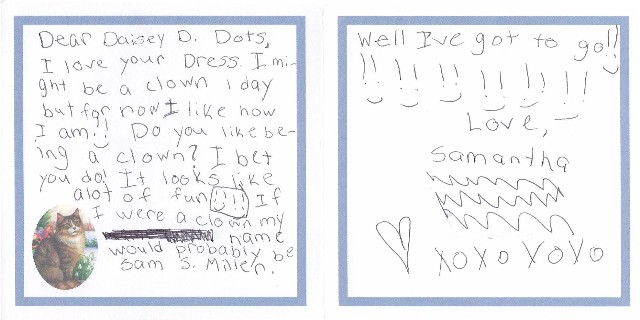 Dear Daisey D. Dots,
I love your Dress. I mi-
ght be a clown 1 day
but for now I like how
I am!! Do you like be-
ing a clown? I bet
you do! It looks like
alot of fun!!! If
I were a clown my
name
would probably be
Sam S. Miller.
Well I've got to go!!
!! !! !! !! !! !!
Love,
Samantha
XOXO XOXO